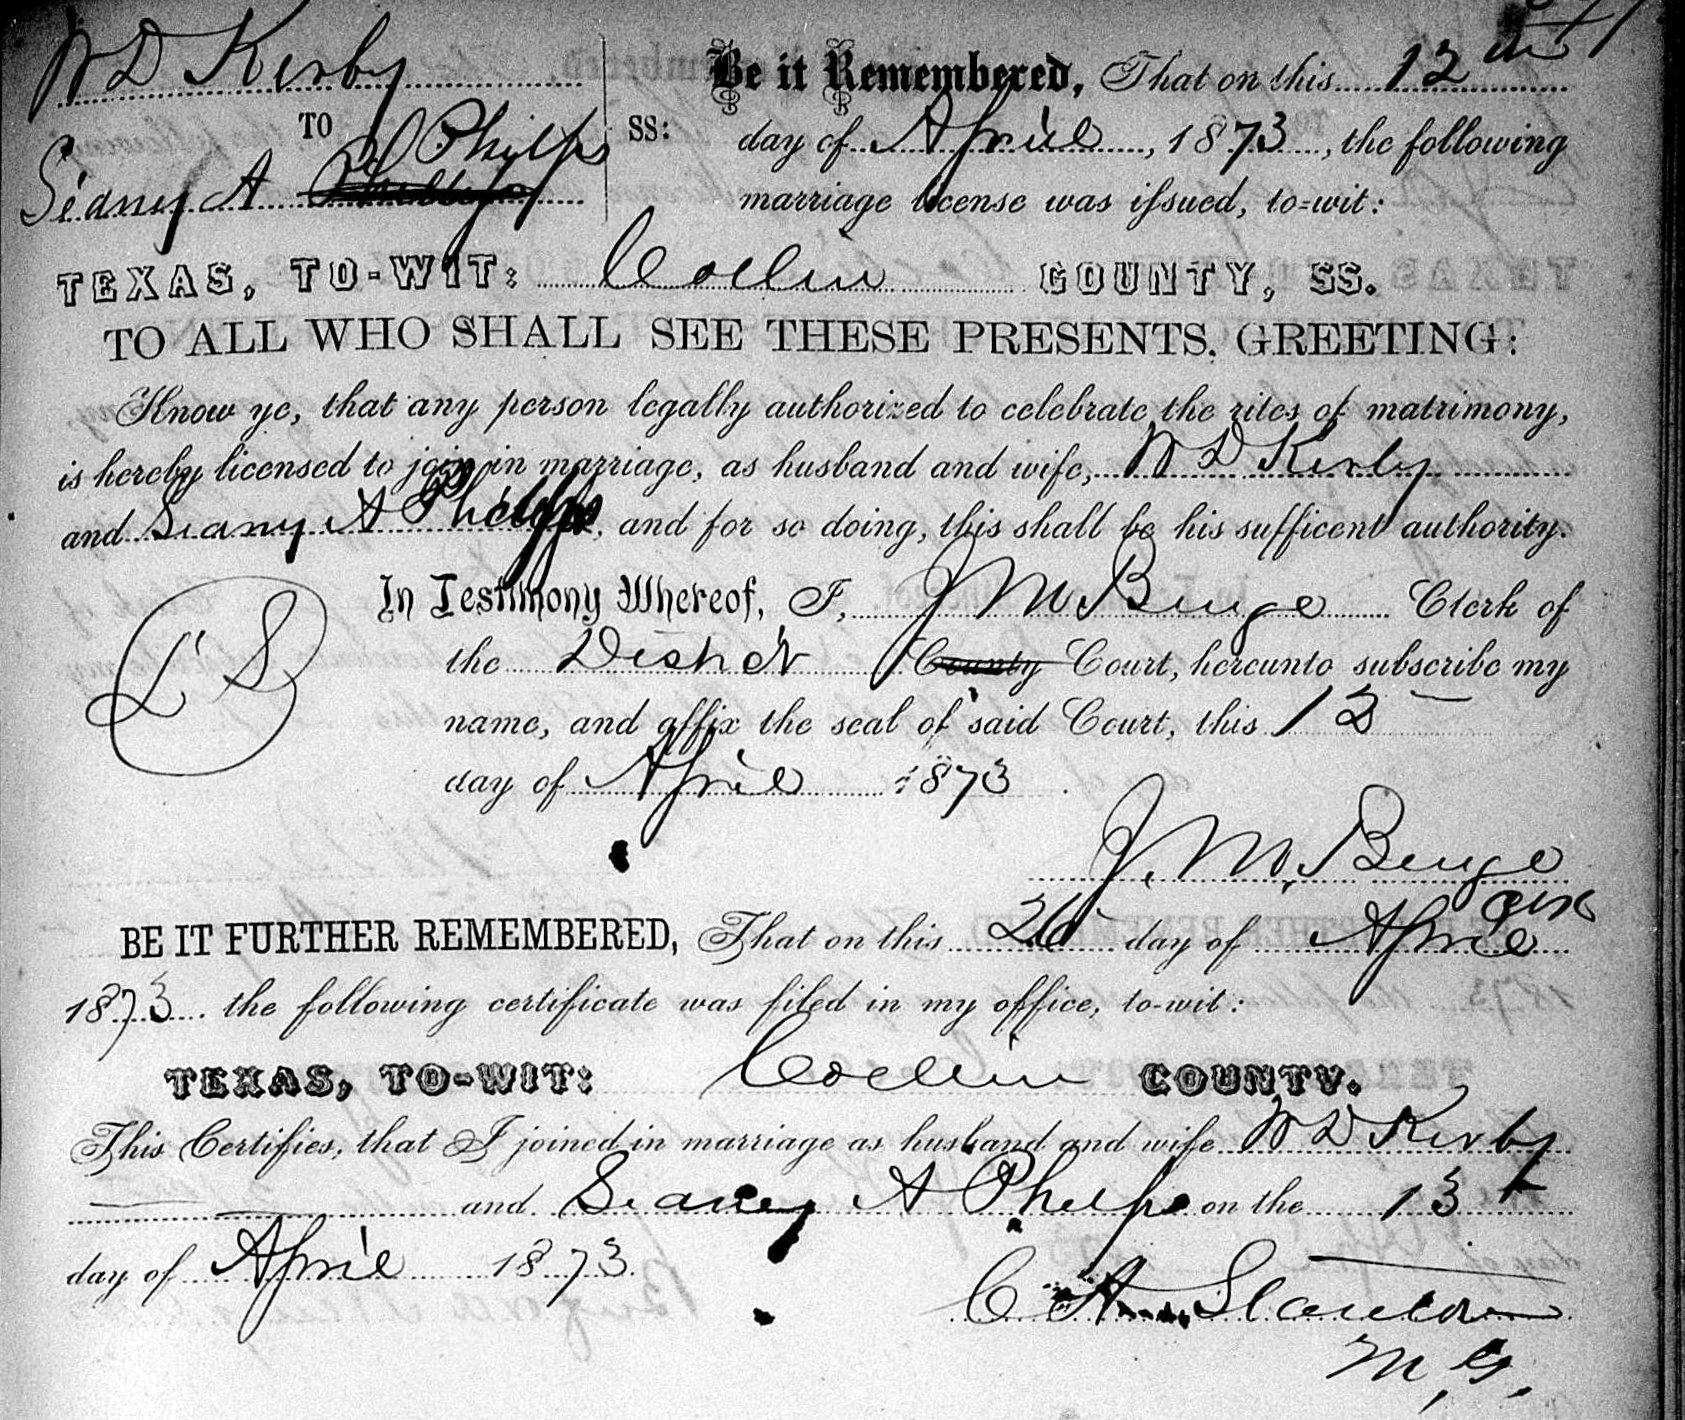 W D Kerby
TO
Sidney A Phelps
SS:
Be it Remembered, That on this 12th
day of April, 1873, the following
marriage license was issued, to=wit:
TEXAS, TO-WIT: Collin COUNTY, SS.
TO ALL WHO SHALL SEE THESE PRESENTS, GREETING:
Know ye, that any person legally authorized to celebrate the rites of matrimony,
is hereby licensed to join in marriage, as husband and wife, W D Kerby
and Sidney A Phelps, and for so doing, this shall be his sufficent authority.
L S
In Testimony Whereof, I, J M Benge Clerk of
the District County Court, hereunto subscribe my
name, and affix the seal of said Court, this 12
day of April 1873.
J. M. Benge
Clk
BE IT FURTHER REMEMBERED, That on this 26 day of April
1873 the following certificate was filed in my office, to-wit:
TEXAS, TO-WIT: Collin COUNTY.
This Certifies, that I joined in marriage as husband and wife W D Kerby
and Sidney A Phelps on the 13
day of April 1873.
C A Stanton
M. G.